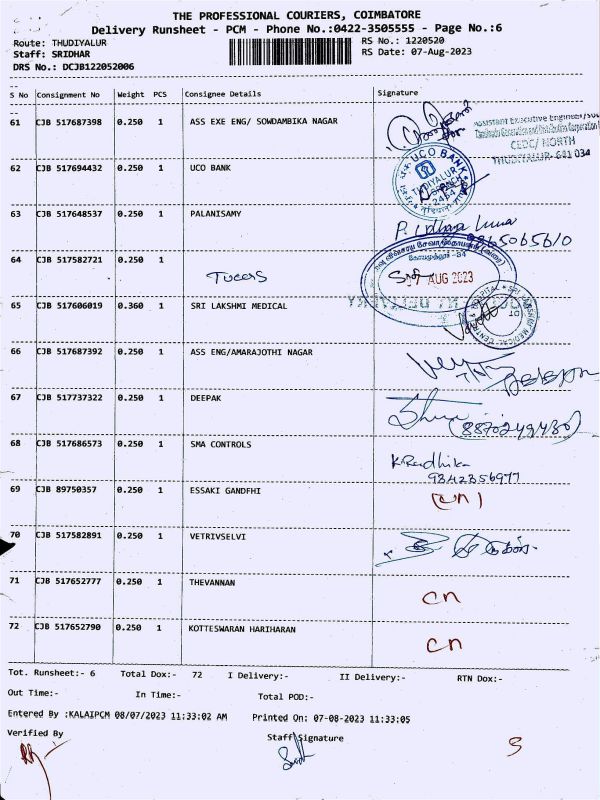 THE PROFESSIONAL COURIERS, COIMBATORE
Delivery Runsheet - PCM - Phone No.:0422-3505555 - Page No.:6
Route: THUDIYALUR RS No.: 1220520
Staff: SRIDHAR RS Date: 07-Aug-2023
DRS No.: DCJB122052006
S No Consignment No Weight PCS Consignee Details Signature
61 CJB 517687398 0.250 1 ASS EXE ENG/ SOWDAMBIKA NAGAR
Assistant Executive Engineer/
CEDC/ NORTH
THUDIYALUR- 641 034
62 CJB 517694432 0.250 1 UCO BANK
UCO BANK
THUDIYALUR
63 CJB 517648537 0.250 1 PALANISAMY
9865065610
64 CJB 517582721 0.250 1
Tucas
AUG 2023
65 CJB 517606019 0.360 1 SRI LAKSHMI MEDICAL
66 CJB 517687392 0.250 1 ASS ENG/AMARAJOTHI NAGAR
67 CJB 517737322 0.250 1 DEEPAK
(8870249430)
68 CJB 517686573 0.250 1 SMA CONTROLS
K Radhika
9342356977
69 CJB 89750357 0.250 1 ESSAKI GANDFHI
70 CJB 517582891 0.250 1 VETRIVSELVI
71 CJB 517652777 0.250 1 THEVANNAN
cn
72 CJB 517652790 0.250 1 KOTTESWARAN HARIHARAN
cn
Tot. Runsheet:- 6 Total Dox:- 72 I Delivery:- II Delivery:- RTN Dox:-
Out Time:- In Time:- Total POD:-
Entered By :KALAIPCM 08/07/2023 11:33:02 AM Printed On: 07-08-2023 11:33:05
Verified By Staff Signature